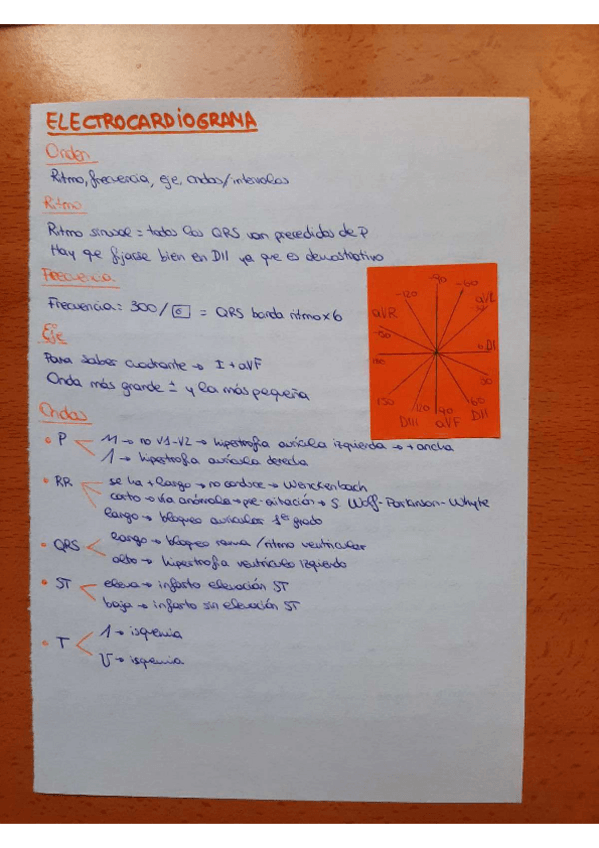 ELECTROCARDIOGRAMA
Orden
Ritmo, frecuencia, eje, ondas/intervalos
Ritmo
Ritmo sinusal = todos los QRS van precedidos de P
Hay que fijarse bien en DII ya que es demostrativo
Frecuencia
Frecuencia: 300/ = QRS borda ritmo x 6
Eje
Para saber cuadrante → I + aVF
Onda más grande ± y la más pequeña
Ondas
• P
M → no V1-V2 → hipertrofia aurícula izquierda → + ancha
→ hipertrofia aurícula derecha
• RR
se ha + largo → no conduce → Wenckenbach
corto → vía anómala → pre-exitación → S. Wolf-Parkinson-Whyte
largo → bloqueo auricular 1er grado
• QRS
largo → bloqueo rama / ritmo ventricular
alto → hipertrofia ventrículo izquierdo
• ST
eleva → infarto elevación ST
baja → infarto sin elevación ST
• T
→ isquemia
→ isquemia
-90
-60
-120
aVL
aVR
-150
DI
180
30
150
120
90
60
DIII
aVF
DII